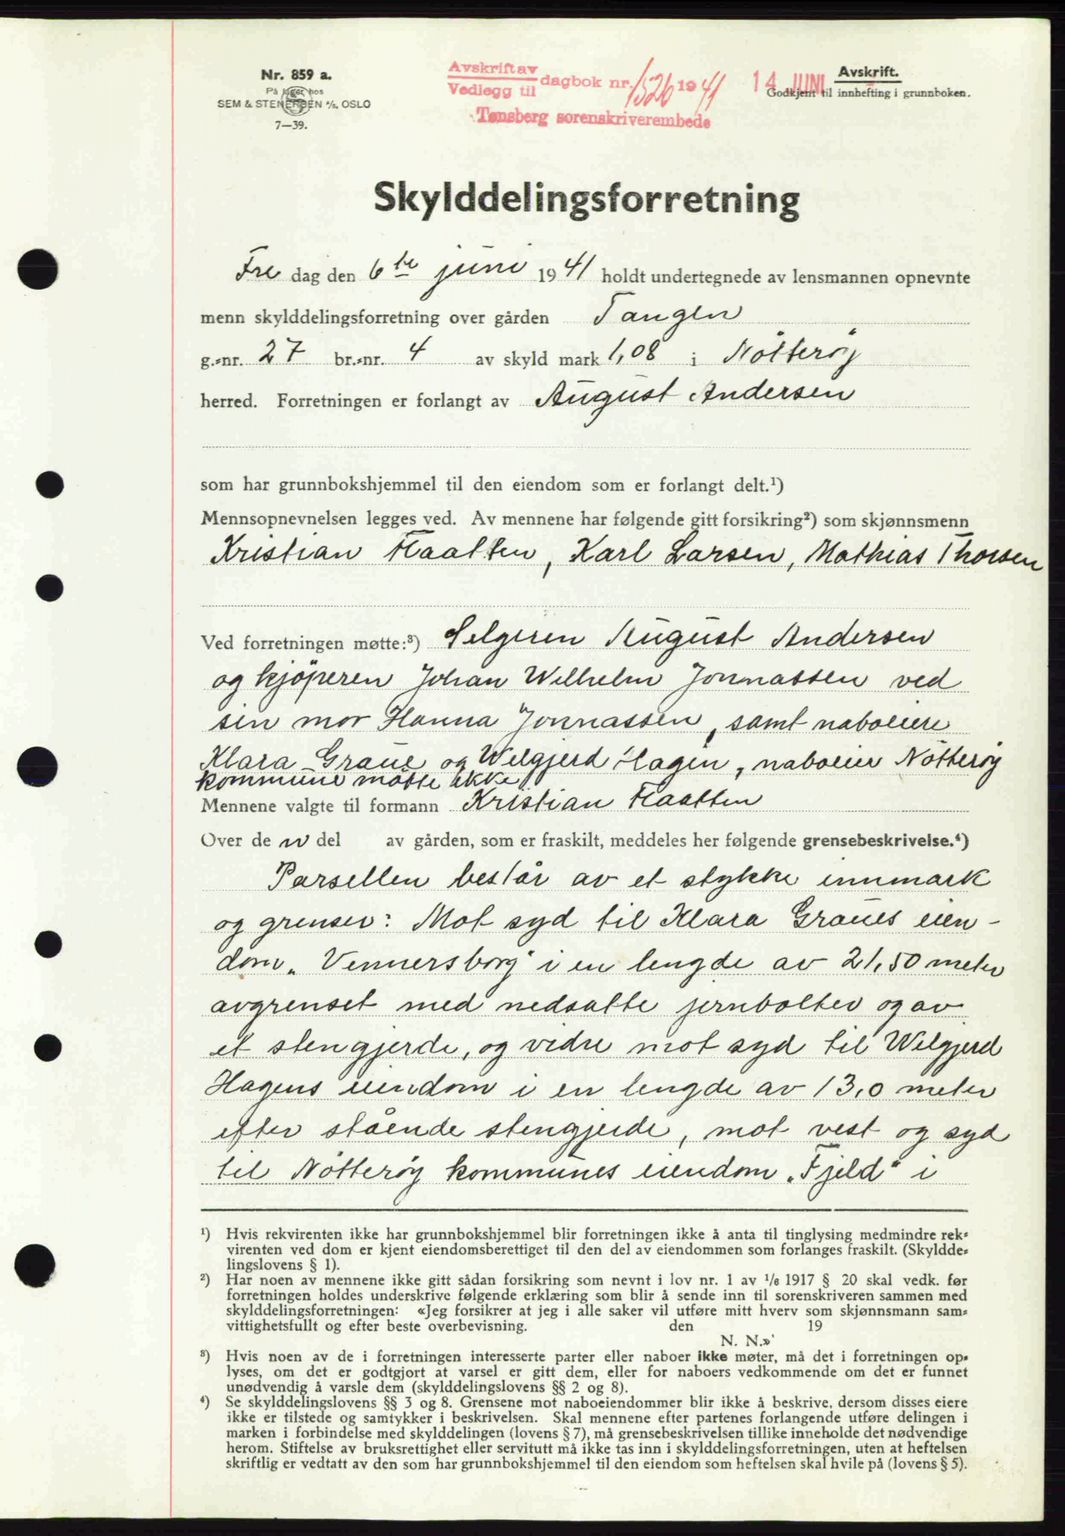 Nr. 859 a.
På lager hos
SEM & STENERSEN A/S, OSLO
7—39.
Avskrift av
Vedlegg til dagbok nr. 1526 1941
Tønsberg sorenskriverembede
14 JUNI
Avskrift.
Godkjent til innhefting i grunnboken.
Skylddelingsforretning
Fre dag den 6te juni 1941 holdt undertegnede av lensmannen opnevnte
menn skylddelingsforretning over gården Tangen
g.-nr. 27 br.-nr. 4 av skyld mark 1,08 i Nötteröy
herred. Forretningen er forlangt av August Andersen
som har grunnbokshjemmel til den eiendom som er forlangt delt.¹)
Mennsopnevnelsen legges ved. Av mennene har følgende gitt forsikring²) som skjønnsmenn
Kristian Flaatten, Karl Larsen, Mathias Thorsen
Ved forretningen møtte:³) Selgeren August Andersen
og kjöperen Johan Wilhelm Jonnassen ved
sin mor Hanna Jonnassen, samt naboeiere
Klara Graue og Welgjerd Hagen, naboeier Nötteröy
kommune mötte ikke
Mennene valgte til formann Kristian Flaatten
Over de n del av gården, som er fraskilt, meddeles her følgende grensebeskrivelse.⁴)
Parsellen består av et stykke innmark
og grenser: Mot syd til Klara Graues eien-
dom „Vennersborg" i en lengde av 21,50 meter
avgrenset med nedsatte jernbolter og av
et stengjerde, og vidre mot syd til Welgjerd
Hagens eiendom i en lengde av 13,0 meter
efter stående stengjerde, mot vest og syd
til Nötteröy kommunes eiendom „Fjeld" i
¹) Hvis rekvirenten ikke har grunnbokshjemmel blir forretningen ikke å anta til tinglysing medmindre rek-
virenten ved dom er kjent eiendomsberettiget til den del av eiendommen som forlanges fraskilt. (Skyldde-
lingslovens § 1).
²) Har noen av mennene ikke gitt sådan forsikring som nevnt i lov nr. 1 av 1/6 1917 § 20 skal vedk. før
forretningen holdes underskrive følgende erklæring som blir å sende inn til sorenskriveren sammen med
skylddelingsforretningen: «Jeg forsikrer at jeg i alle saker vil utføre mitt hverv som skjønnsmann sam-
vittighetsfullt og efter beste overbevisning. den 19
N. N.»
³) Hvis noen av de i forretningen interesserte parter eller naboer ikke møter, må det i forretningen op-
lyses, om det er godtgjort at varsel er gitt dem, eller for naboers vedkommende om det er funnet
unødvendig å varsle dem (skylddelingslovens §§ 2 og 8).
⁴) Se skylddelingslovens §§ 3 og 8. Grensene mot naboeiendommer blir ikke å beskrive, dersom disses eiere
ikke er tilstede og samtykker i beskrivelsen. Skal mennene efter partenes forlangende utføre delingen i
marken i forbindelse med skylddelingen (lovens § 7), må grensebeskrivelsen tillike inneholde det nødvendige
herom. Stiftelse av bruksrettighet eller servitutt må ikke tas inn i skylddelingsforretningen, uten at heftelsen
skriftlig er vedtatt av den som har grunnbokshjemmel til den eiendom som heftelsen skal hvile på (lovens § 5).